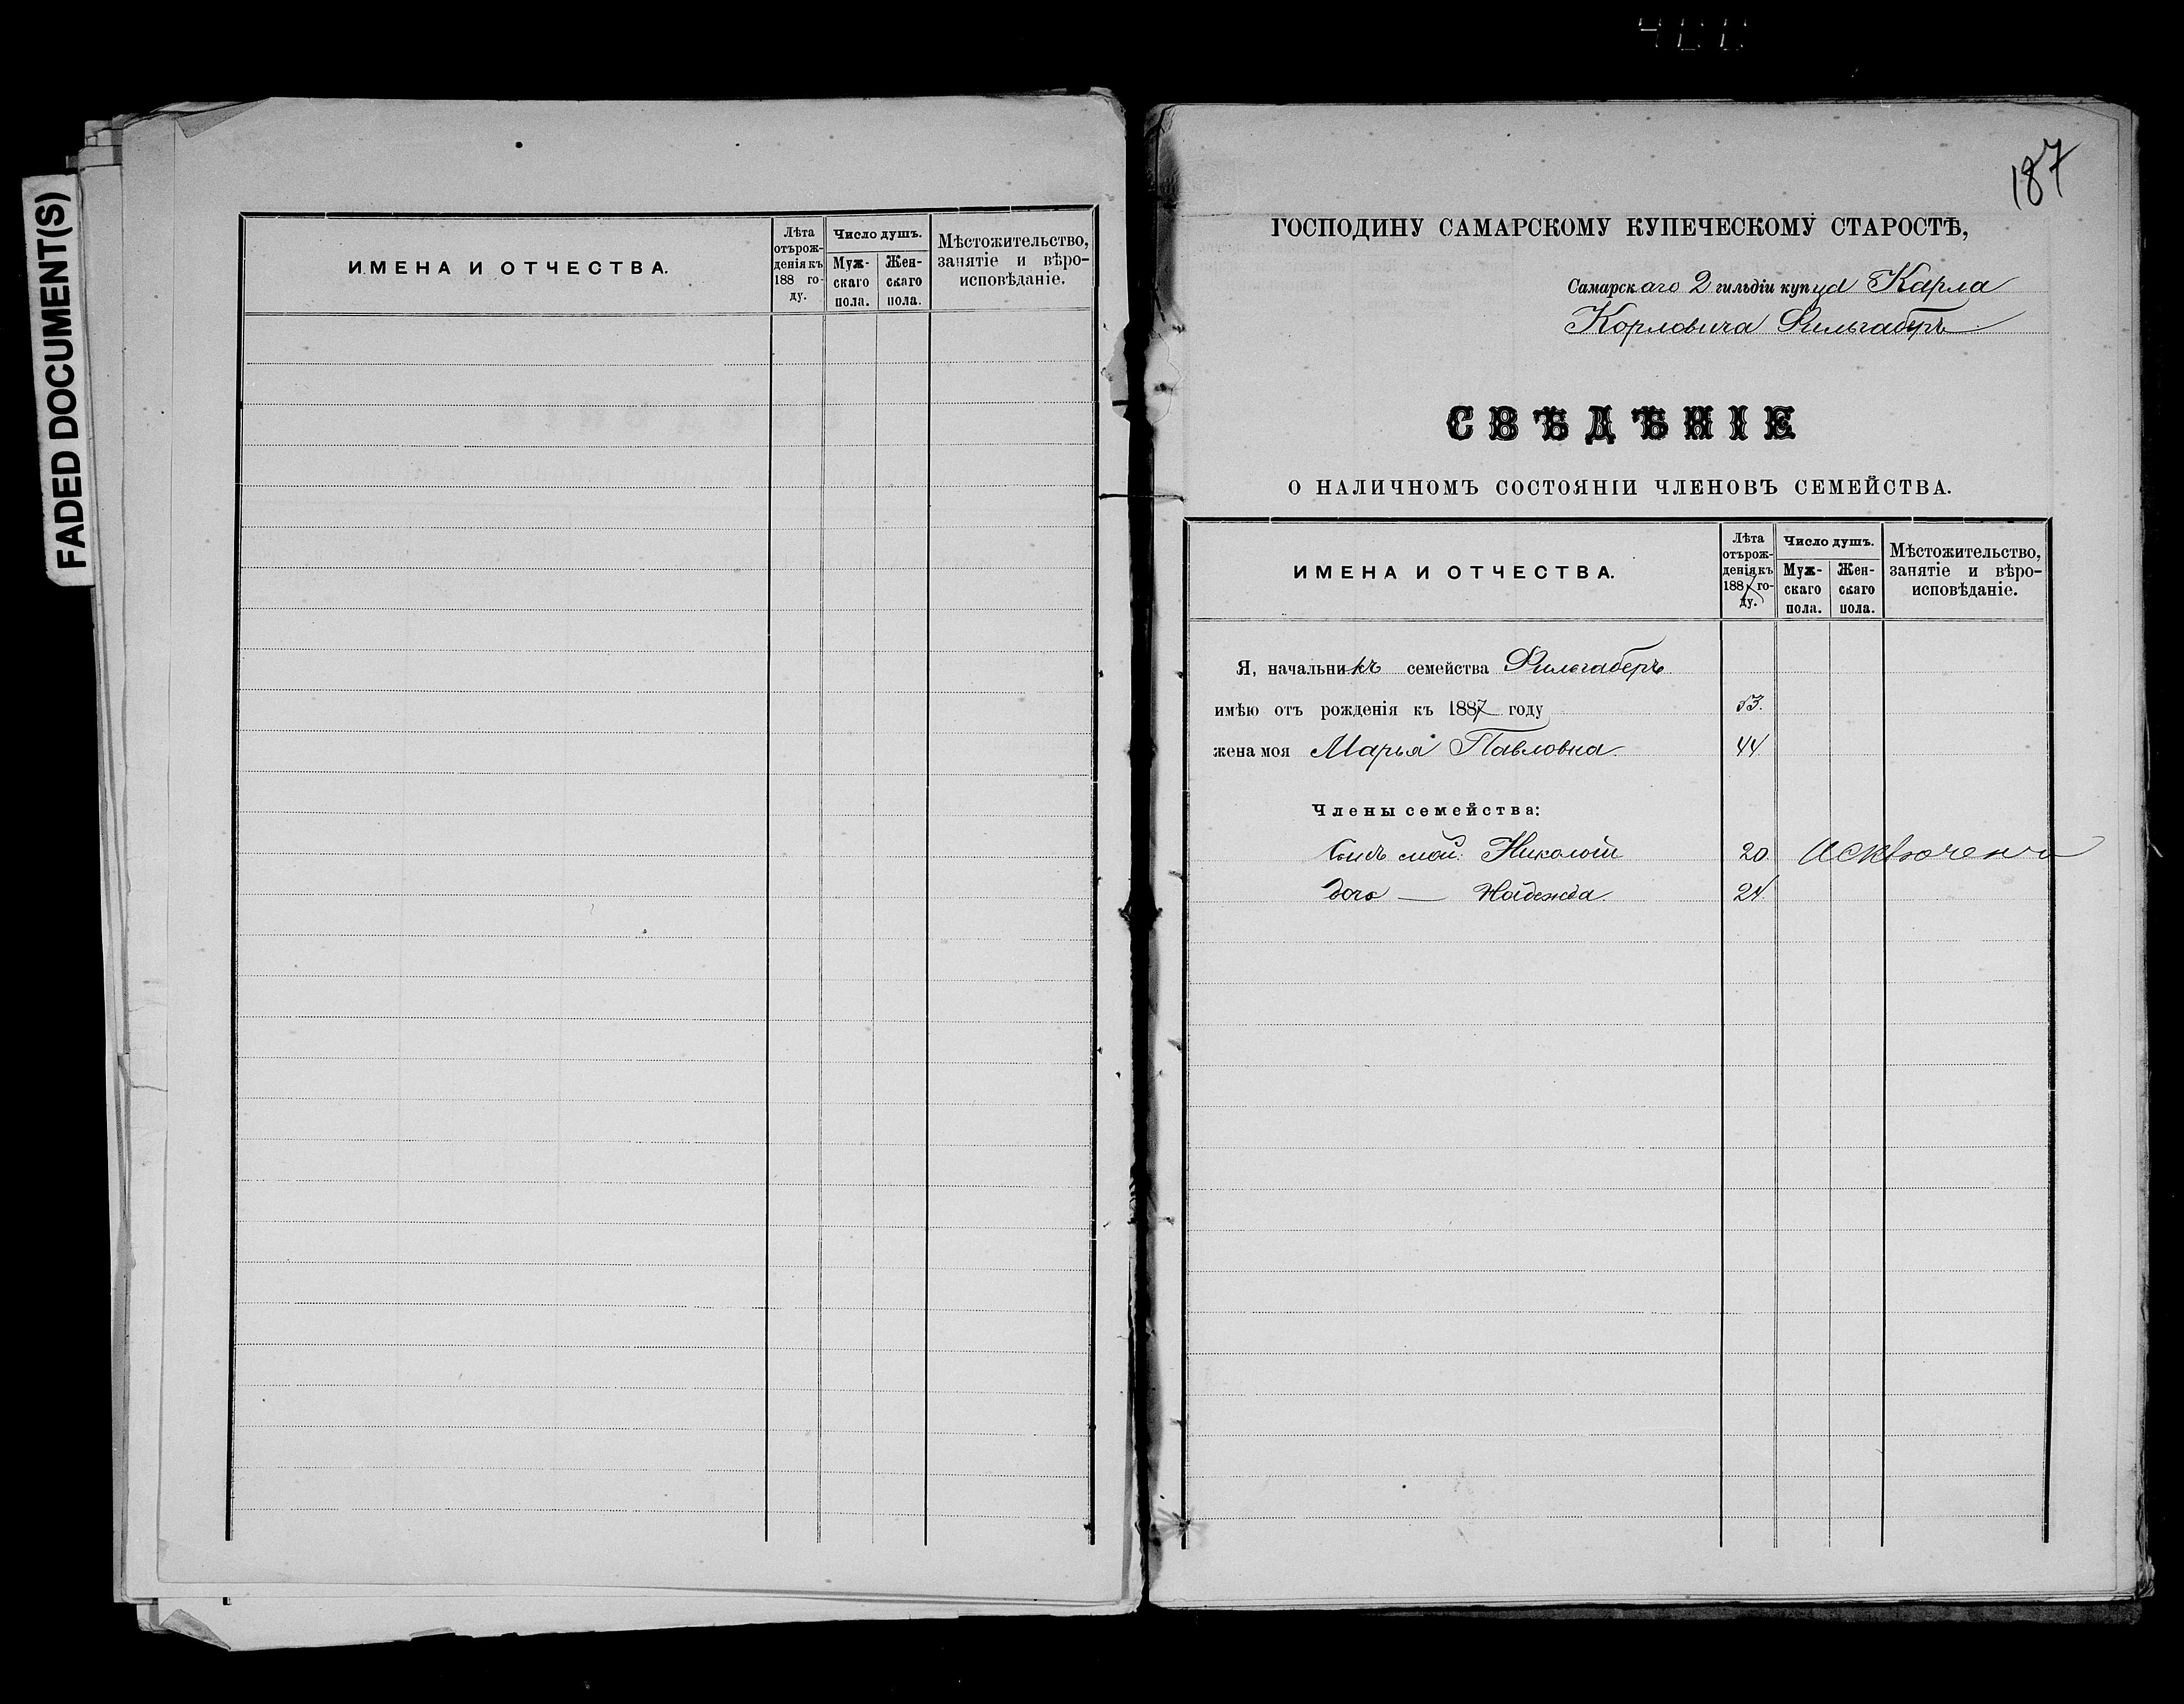 FADED DOCUMENT(S)
ИМЕНА И ОТЧЕСТВА.
Лѣта отърожденія къ 188 году.
Число душъ.
Мужскаго пола.
Женскаго пола.
Мѣстожительство, занятіе и вѣроисповѣданіе.
187
ГОСПОДИНУ САМАРСКОМУ КУПЕЧЕСКОМУ СТАРОСТѢ,
Самарскаго 2 гильдіи купца Карла
Карловича Фильгаберъ
СВѢДѢНІЕ
О НАЛИЧНОМЪ СОСТОЯНІИ ЧЛЕНОВЪ СЕМЕЙСТВА.
ИМЕНА И ОТЧЕСТВА.
Лѣта отърожденія къ 1887 году.
Число душъ.
Мужскаго пола.
Женскаго пола.
Мѣстожительство, занятіе и вѣроисповѣданіе.
Я, начальникъ семейства Фильгаберъ
имѣю отъ рожденія къ 1887 году 53.
жена моя Марья Павловна. 44
Члены семейства:
Сынъ мой: Николай 20.
дочь — Надежда. 24.